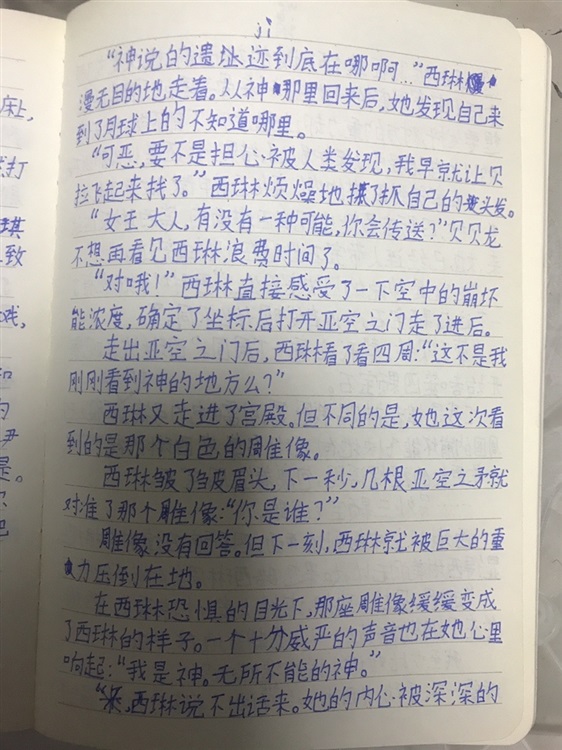 “神说的遗址迹到底在哪啊…”西琳
漫无目的地走着。从神那里回来后,她发现自己来
到了月球上的不知道哪里。
“可恶,要不是担心被人类发现,我早就让贝
拉飞起来找了。”西琳烦燥地抓了抓自己的头发。
“女王大人,有没有一种可能,你会传送?”贝贝龙
不想再看见西琳浪费时间了。
“对哦!”西琳直接感受了一下空中的崩坏
能浓度,确定了坐标后打开亚空之门走了进后。
走出亚空之门后,西琳看了看四周:“这不是我
刚刚看到神的地方么?”
西琳又走进了宫殿。但不同的是,她这次看
到的是那个白色的雕像。
西琳皱了皱眉头,下一秒,几根亚空之矛就
对准了那个雕像:“你是谁?”
雕像没有回答。但下一刻,西琳就被巨大的重
力压倒在地。
在西琳恐惧的目光下,那座雕像缓缓变成
了西琳的样子。一个十分威严的声音也在她心里
响起:“我是神。无所不能的神。”
西琳说不出话来。她的内心被深深的
床上,
打
琪
致
戏,
和
的
尹
是。
尔
把